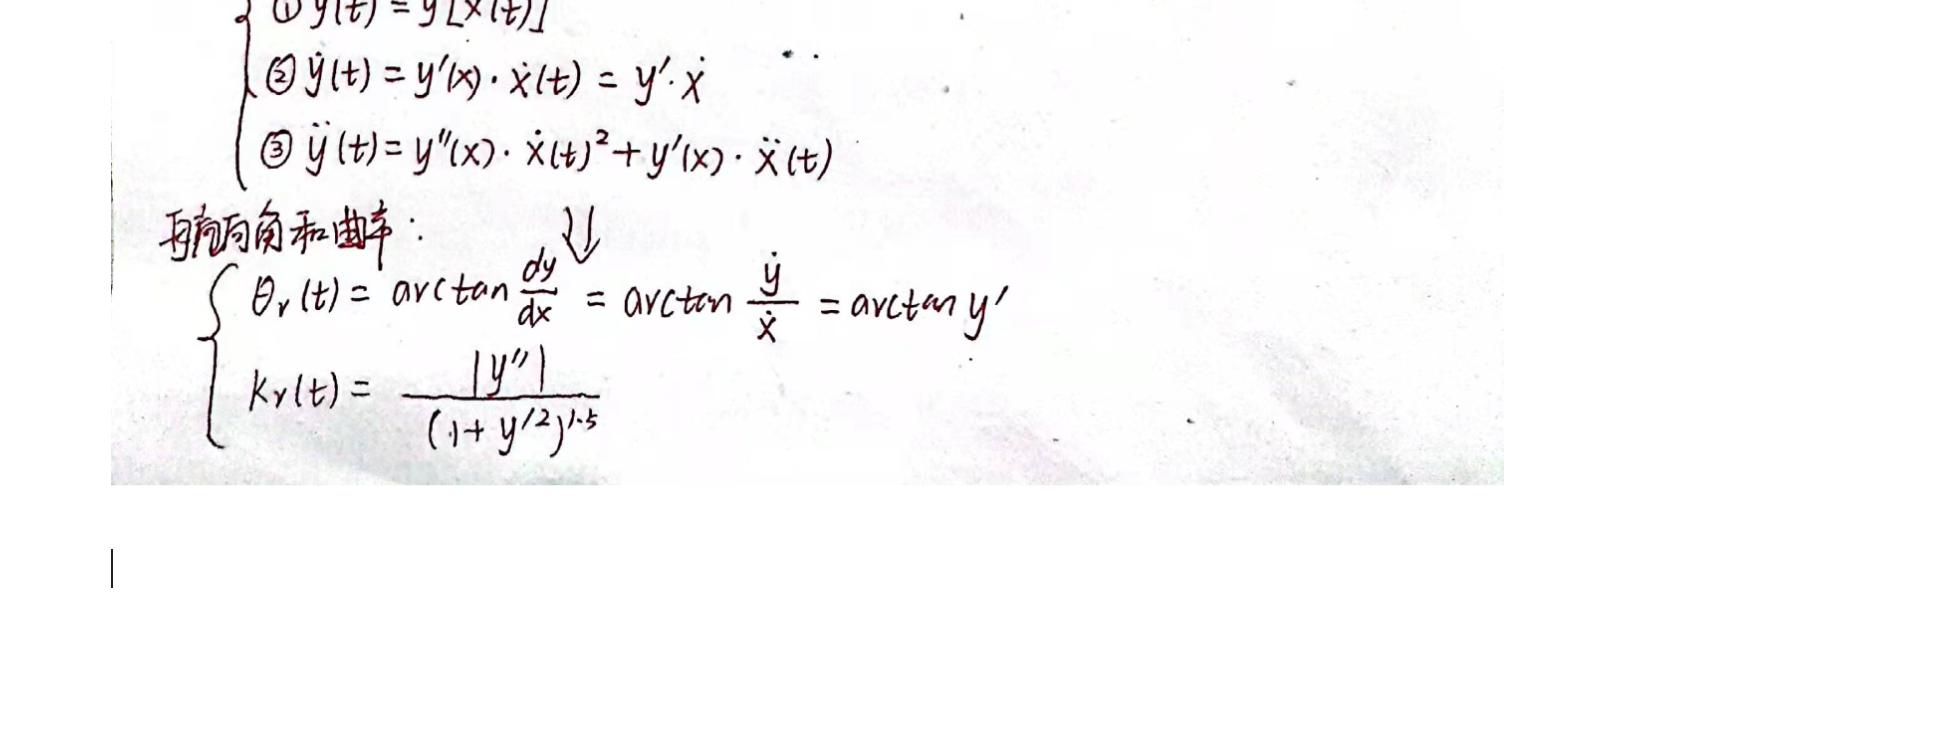 ① y(t) = y[x(t)]
② ẏ(t) = y′(x)·ẋ(t) = y′·ẋ
③ ÿ(t) = y″(x)·ẋ(t)² + y′(x)·ẍ(t)
再求航向角和曲率:
θr(t) = arctan dy/dx = arctan ẏ/ẋ = arctan y′
kr(t) = |y″| / (1+y′²)^1.5